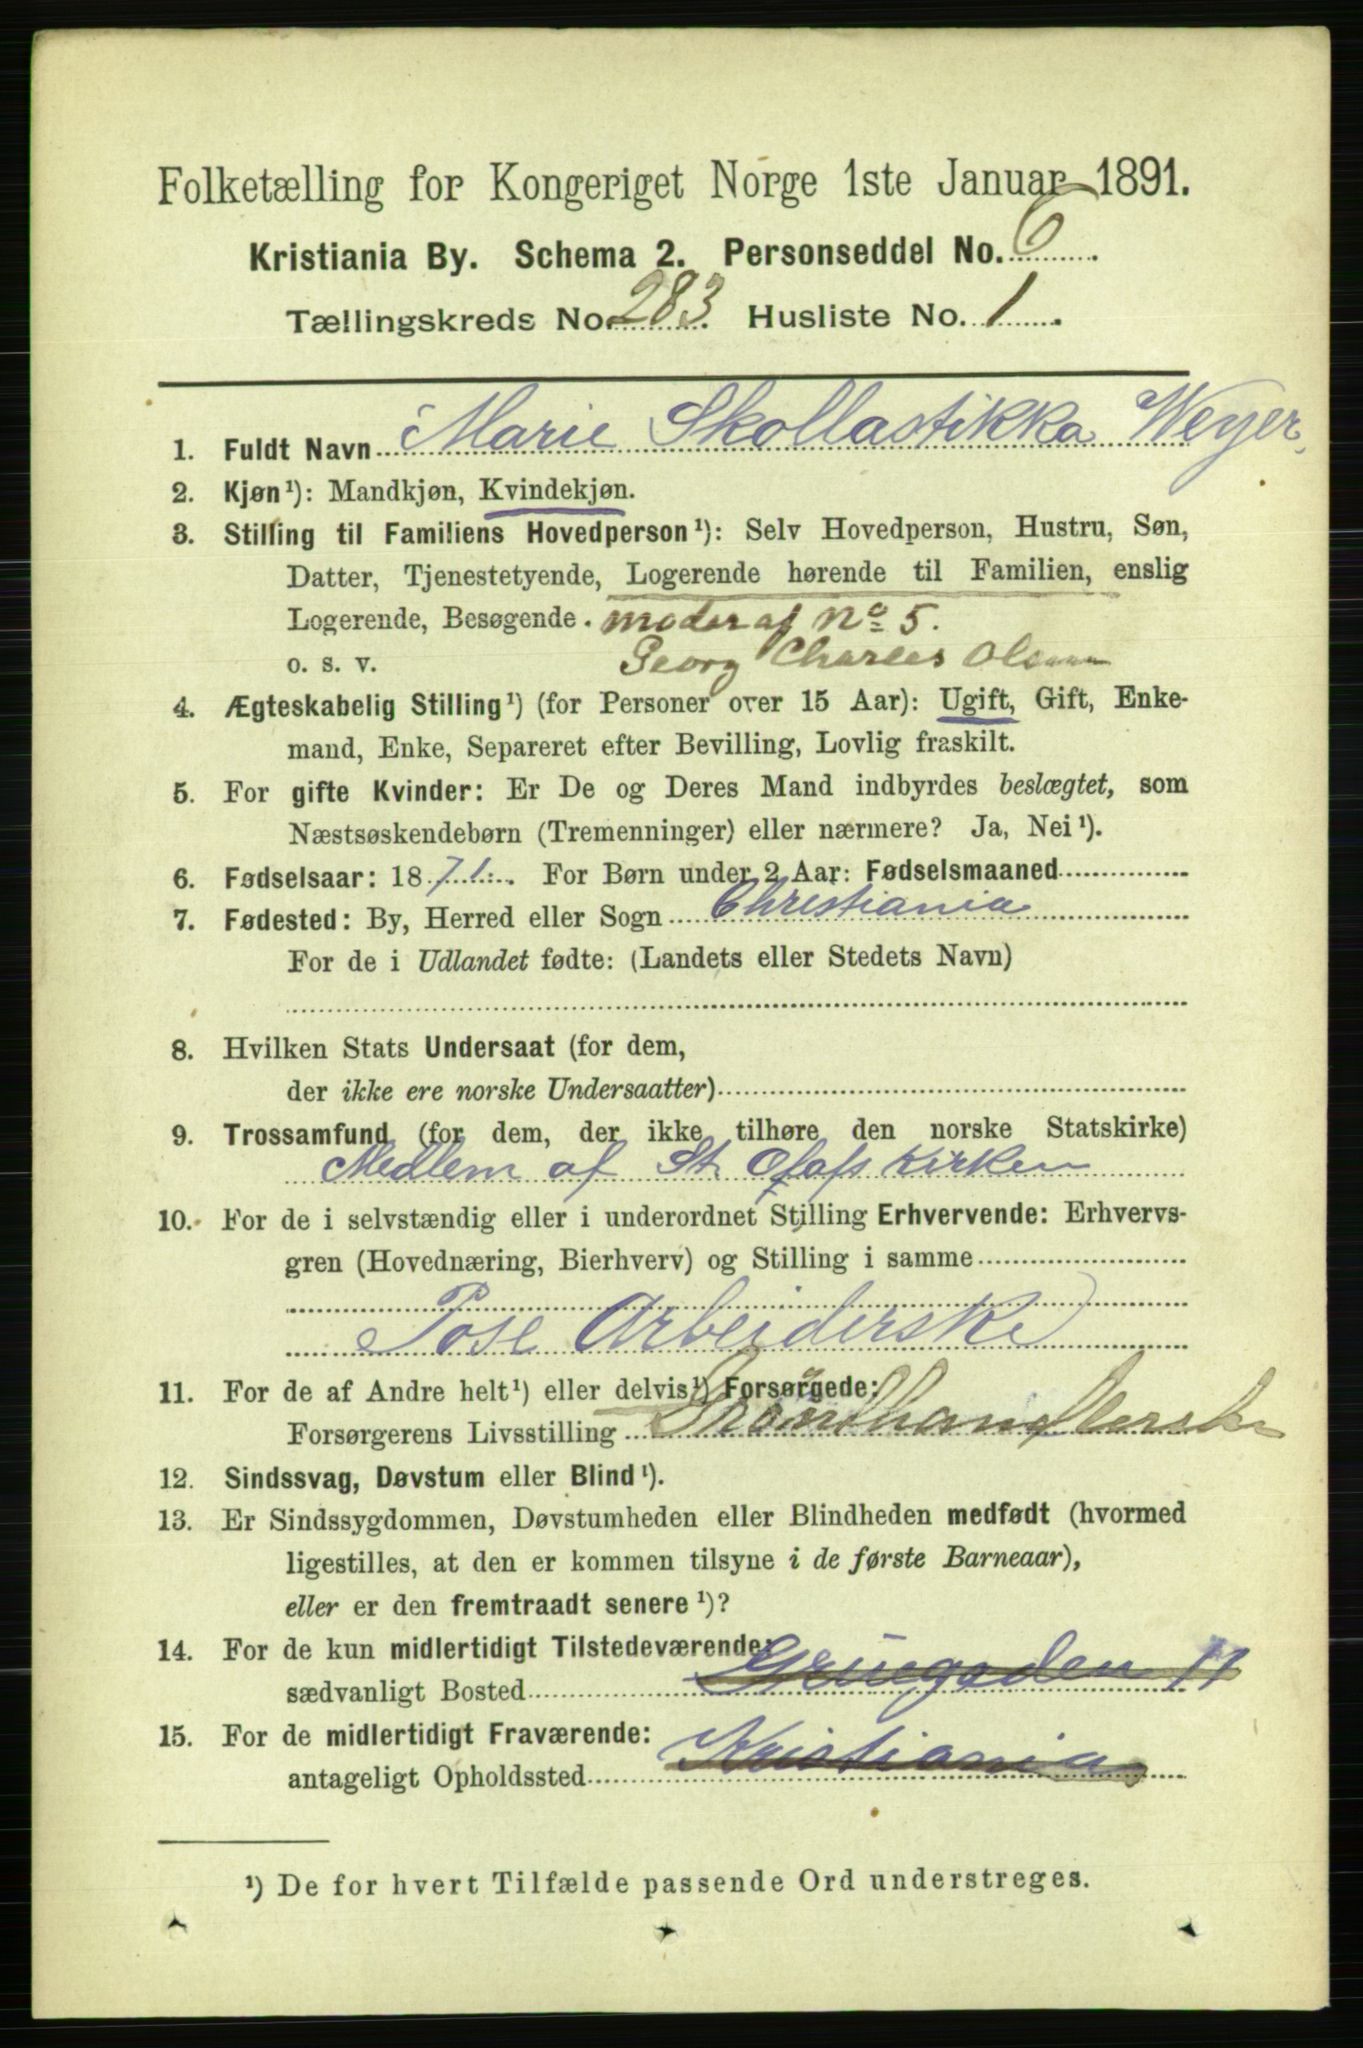 Folketælling for Kongeriget Norge 1ste Januar 1891.
Kristiania By. Schema 2. Personseddel No. 6
Tællingskreds No. 283. Husliste No. 1.
1. Fuldt Navn Marie Skollastikka Weyer
2. Kjøn¹): Mandkjøn, Kvindekjøn.
3. Stilling til Familiens Hovedperson¹): Selv Hovedperson, Hustru, Søn,
Datter, Tjenestetyende, Logerende hørende til Familien, enslig
Logerende, Besøgende. moder af No 5.
o. s. v. Georg Charles Olsen
4. Ægteskabelig Stilling¹) (for Personer over 15 Aar): Ugift, Gift, Enke-
mand, Enke, Separeret efter Bevilling, Lovlig fraskilt.
5. For gifte Kvinder: Er De og Deres Mand indbyrdes beslægtet, som
Næstsøskendebørn (Tremenninger) eller nærmere? Ja, Nei¹).
6. Fødselsaar: 1871. For Børn under 2 Aar: Fødselsmaaned
7. Fødested: By, Herred eller Sogn Christiania
For de i Udlandet fødte: (Landets eller Stedets Navn)
8. Hvilken Stats Undersaat (for dem,
der ikke ere norske Undersaatter)
9. Trossamfund (for dem, der ikke tilhøre den norske Statskirke)
Medlem af St Olafs kirken
10. For de i selvstændig eller i underordnet Stilling Erhvervende: Erhvervs-
gren (Hovednæring, Bierhverv) og Stilling i samme
Pose Arbeiderske
11. For de af Andre helt¹) eller delvis¹) Forsørgede:
Forsørgerens Livsstilling Grønthandlerske
12. Sindssvag, Døvstum eller Blind¹).
13. Er Sindssygdommen, Døvstumheden eller Blindheden medfødt (hvormed
ligestilles, at den er kommen tilsyne i de første Barneaar),
eller er den fremtraadt senere¹)?
14. For de kun midlertidigt Tilstedeværende:
sædvanligt Bosted 11
15. For de midlertidigt Fraværende:
antageligt Opholdssted Kristiania
¹) De for hvert Tilfælde passende Ord understreges.